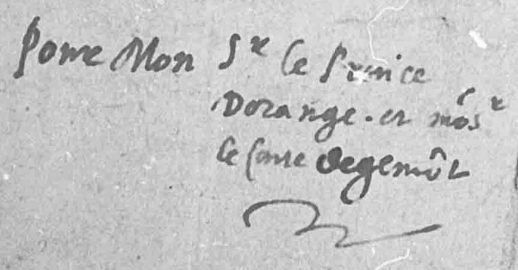 Pour Mon Sr le Prince
Dorange . et mōsr
le Conte degemōt